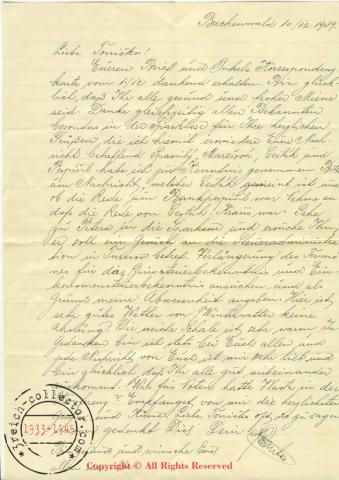 Buchenwald 10/12 1939.
Liebe Tonička!
Eueren Brief und Onkels Korrespondenz
karte vom 1/12 dankend erhalten. Bin glück-
lich, daß Ihr alle gesund und froher Miene
seid. Danke gleichzeitig allen Bekannten
besonders in der Sparkasse für Ihre herzlichen
Grüßen, die ich hiemit erwidere Eure Nach-
richt betreffend und
habe ich zur Kenntnis genommen. Bitte
um Nachricht, welcher gemeint ist und
ob die Rede um war. Nehme an
daß die Rede von war. Gehe
zu Petera in die Sparkasse und ersuche Ihn,
er soll ein Gesuch an die Steueradministra-
tion in betref. Verlängerung des Termi-
nes für das Zinssteuerbekenntnis und Ein-
kommensteuerbekenntnis ansuchen und als
Grund meine Abwesenheit angeben. Hier ist
sehr gutes Wetter von Winterwetter keine
Ahnung. Die weiche Schale ist sehr warm. In
Gedanken bin ich stets bei Euch allen und
jede Nachricht von Euch ist mir sehr lieb und
bin glücklich daß Ihr alle gut miteinander
auskommt. Was für Noten hatte Hansi in der
Empfanget von mir die herzlichsten
Grüße und Küsse Liebe Tonička oft, so zu sagen
gedenkt Dies Dein
und wünsche Euch
allen
3reich-collector.com
1933-1945
Copyright © All Rights Reserved